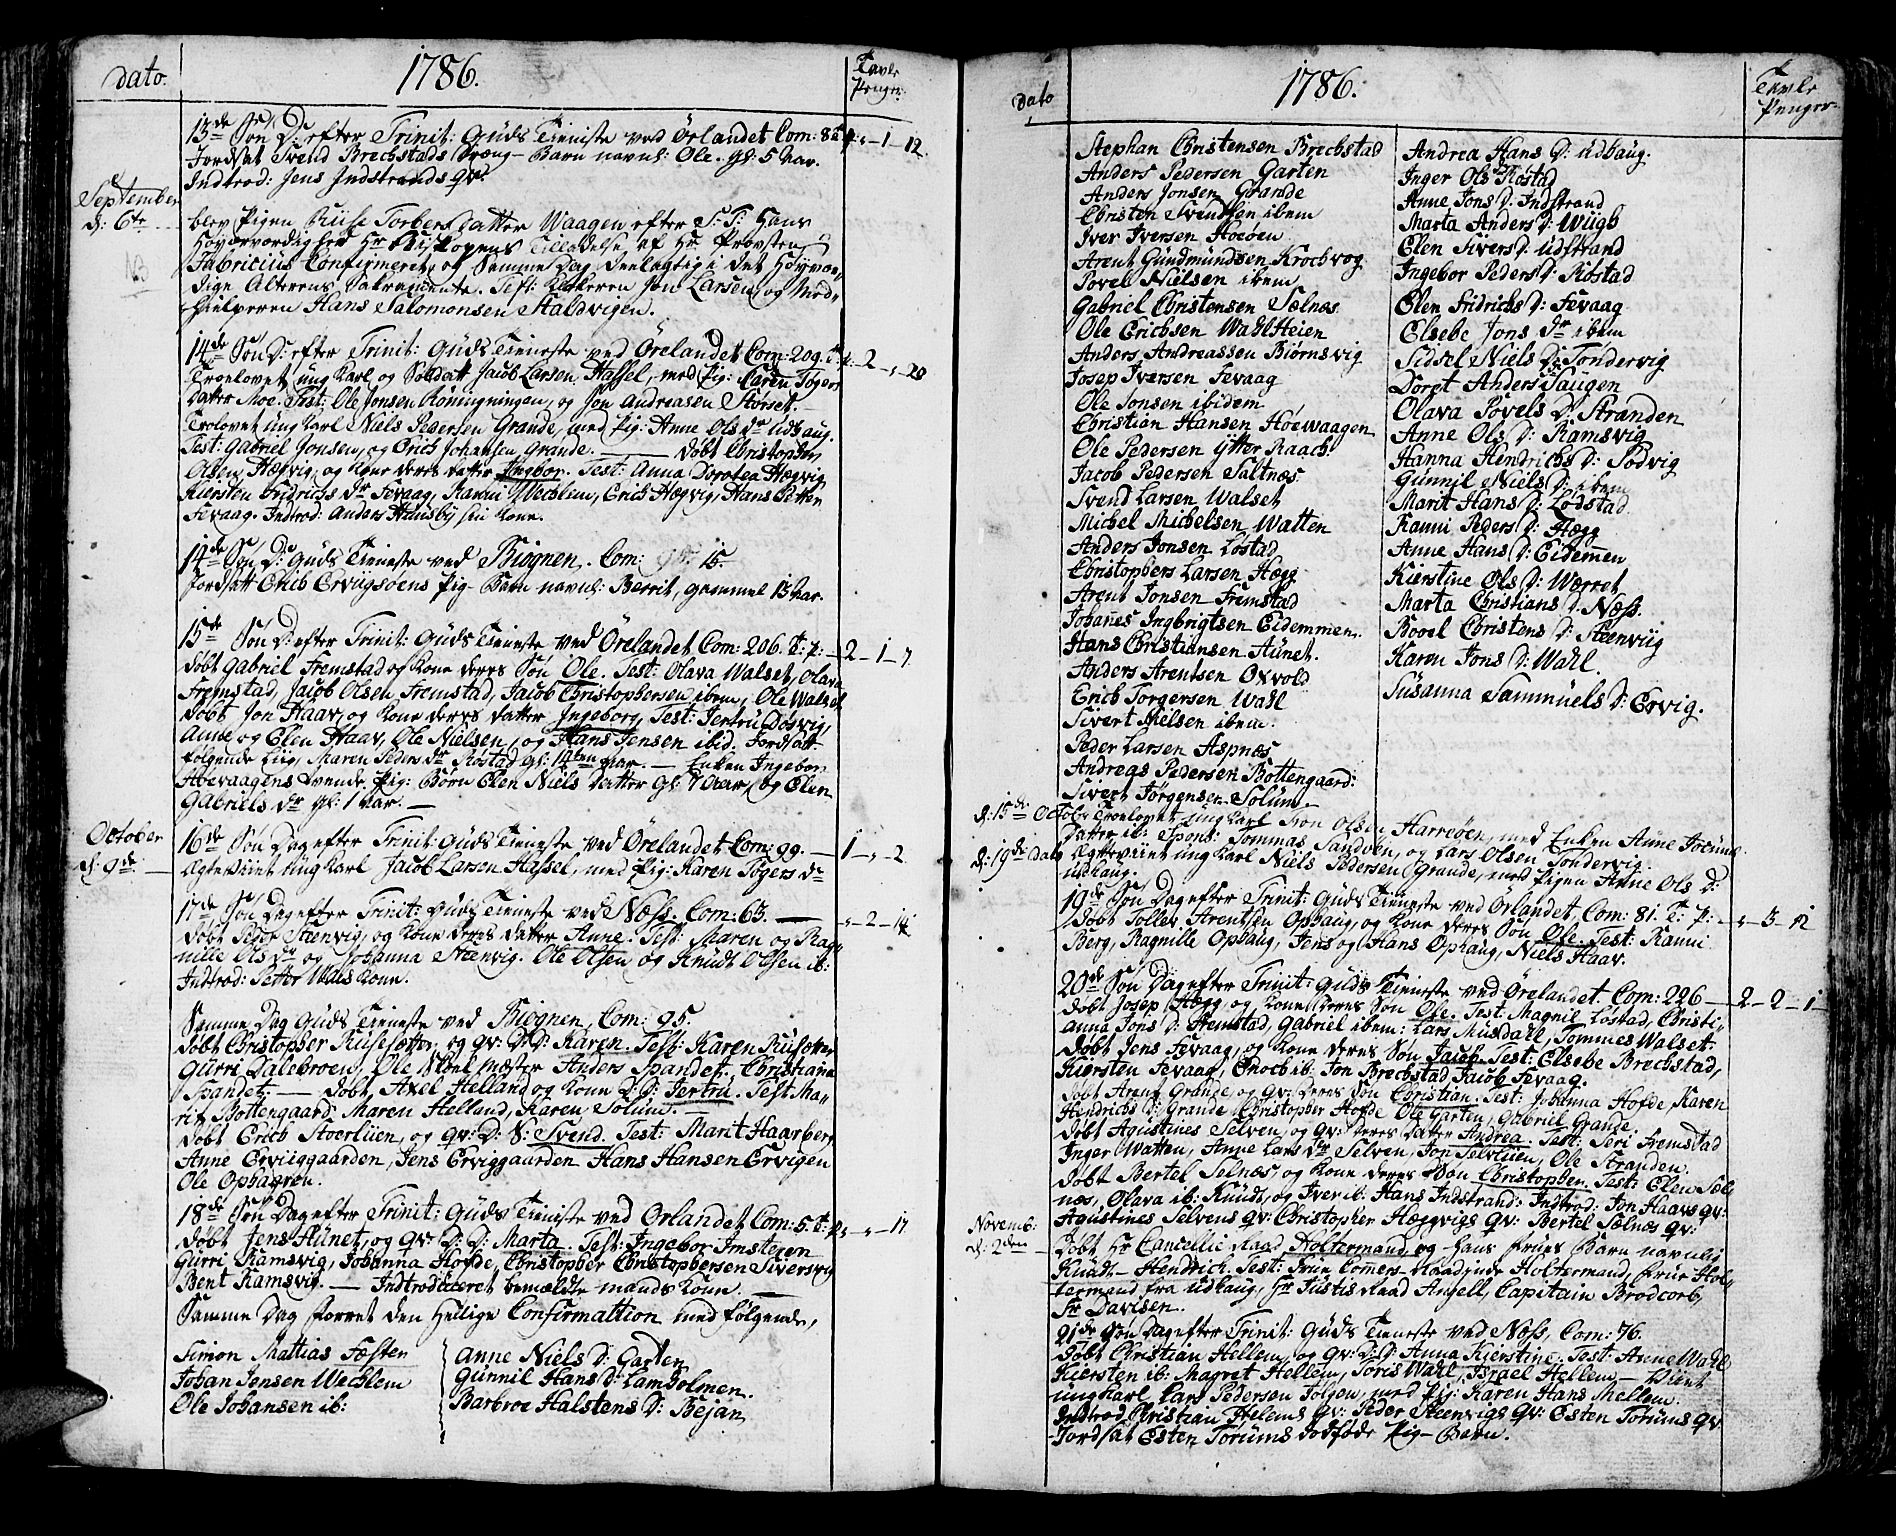 dato. 1786. Tavle
Penger:
13de Søn D: efter Trinit: Guds Tieniste ved Örlandet Com: 82 - 1 - 12
Jordsat Svend Brechstads Dræng-Barn navnl: Ole. gl: 5 Aar.
Indtrod: Jens Indstrands qv:
September
d: 6te blev Pigen Torbers Datter Waagen efter S: T: Hans
NB
Høyærværdighed Hr Biskopens Tilladelse af Hr Provsten
Fabricius Confirmeret, og Samme Dag deelagtig i det Høyvær-
dige Alterens Sakramente. Test: Klokkeren Jon Larsen, og Med-
hielperen Hans Salomonsen Staldvigen.
14de Søn D: efter Trinit: Guds Tieniste ved Örelandet Com: 209. - 2 - 20
Troelovet ung Karl og Soldatt Jacob Larsen Hassel, med Pig: Caren Togers
Datter Moe. Test: Ole Jonsen Röningningen, og Jon Andreasen Störset.
Trolovet ung Karl Niels Pedersen Grande, med Pig: Anne Ols dr Udhaug.
Test: Gabriel Jonsen, og Erich Johansen Grande. — Döbt Christopher
Olsen Hægvig, og Kone deres datter Ingbor. Test: Anna Dorotea Hægvig
Kiersten Fridrichs dr Fevaag, Karmi Wechlem, Erich Hægvig, Hans Petter
Fevaag. Indtrod: Anders Hansby sin Kone.
14de Søn D: Guds Tieniste ved Biögnen. Com: 15.
Jordsatt Erich Ervigsöens Pig-Barn navnl: Berrit, gammel 13 Aar.
15de Søn D: efter Trinit: Guds Tieniste ved Örelandet Com: 206. T: P: - 2 - 1 - 7
Döbt Gabriel Fremstad og Kone deres Søn Ole. Test: Olava Walset, Olava
Fremstad, Jacob Olsen Fremstad, Jacob Christophersen ibem, Ole Walset
Döbt Jon Haav, og Kone deres datter Ingeborg, Test: Jertru Dösvig,
Anne og Elen Haav, Ole Nielsen, og Hans Jensen ibid. Jordsatt
følgende Liig, Maren Peders dr Röstad gl: 14ten Aar. — Enken Ingebor
Höevaagens tvende Pig: Børn Elen Niels Datter gl: 7 Aar, og Elen
Gabriels dr gl: 1 Aar. —
October
d: 9de
16de Søn Dag efter Trinit: Guds Tieniste ved Örelandet Com: 99. — 1 - 2
Ægteviiet ung Karl Jacob Larsen Hassel, med Pig: Karen Togers dr
17de Søn Dag efter Trinit: Guds Tieniste ved Næss. Com: 63. — 2 - 14
Döbt Peder Steenvig, og Kone deres datter Anne. Test: Maren og Rag-
nille Ols dr og Johanna Steenvig. Ole Olsen og Knudt Olsen ib:
Indtrod: Petter Wals Kone.
Samme Dag Guds Tieniste ved Biögnen, Com: 95.
Döbt Christopher Rusesætter, og qv: D: D: Karen. Test: Karen Rusetter
Gurri Dalebroen, Ole Skoelmæster Anders Spandet, Christiana
Spandet. — Döbt Axel Helland og Kone D: D: Jertru. Test: Ma-
rit Bottengaard, Maren Helland, Karen Solum. —
Döbt Erich Stoerluen, og qv: D: S: Svend. Test: Marit Haarberg
Anne Erviggaarden, Jens Erviggaarden Hans Hansen Ervigen
Ole Ophagren.
18de Søn Dag efter Trinit: Guds Tieniste ved Örlandet Com: 5. T: P: - 17
Döbt Jens Hunet, og qv: D: D: Marta. Test: Ingebor Imsteren
Gurri Ramsvig, Johanna Hofde, Christopher Christophersen Siversvig
Bent Ramsvig. — Indtroduceret bemældte mands Kone. —
Samme Dag forret den Hellige Confirmattion med følgende,
Simon Mattias Fæsten
Johan Jensen Wechlem
Ole Johansen ib:
Anne Niels D: Garten
Gunnil Hans D: Lamholmen.
Barbroe Halstens D: Bejan
dato 1786. Tavle
Penger.
Stephan Christensen Brechstad
Anders Pedersen Garten
Anders Jonsen Grande
Christen Svendsen ibem
Iver Iversen Hoeöen
Arent Gundmundsen Krochvog
Povel Nielsen ibem
Gabriel Christensen Sælnæs
Ole Erichsen Wadl Heien
Anders Andreassen Biörnsvig
Josep Iversen Fevaag
Ole Jonsen ibidem
Christian Hansen Höewaagen
Ole Pedersen Ytter Raach
Jacob Pedersen Saltnæs
Svend Larsen Walset
Michel Michelsen Watten
Anders Jonsen Löstad
Christophers Larsen Hægg
Arent Jonsen Fremstad
Johanes Ingbrigtsen Eidemmen.
Hans Christiansen Hunet.
Anders Arentsen Oxvold
Erich Torgersen Wadl
Sivert Nielsen ibem.
Peder Larsen Aspnæs
Andreas Pedersen Bottengaard:
Sivert Jörgensen Solum.
Andrea Hans D: Udhaug.
Inger Ols D: Rostad
Anne Jons D: Indstrand
Marta Anders D: Wiigb
Elen Sivers D: Udstrand
Ingebor Peders D: Röstad
Elen Fridrichs D: Fevaag
Elsebe Jons dr ibem
Sidsel Niels D: Tondervig
Doret Anders D: Haugen
Olava Povels D: Stranden
Anne Ols D: Ramsvig
Hanna Hendrichs D: Sodvig
Gunnil Niels D: ibem
Marit Hans D: Lödstad
Ranni Peders D: Hægg
Anne Hans D: Eidemmen
Kierstine Ols D: Wærret
Marta Christians D: Næss.
Bovel Christens D: Steenviig
Karen Jons D: Wahl.
Susanna Sammuels D: Ervig.
d: 15de Octobr Troelovet ung Karl Jon Olsen Harreöen, med Enken Anne Jocums
Datter ib: Spons: Tommas Sandven, og Lars Olsen Tondervig.
d: 19de dato Ægteviiet ung Karl Niels Pedersen Grande, med Pigen Anne Ols D:
Udhaug.
19de Søn Dag efter Trinit: Guds Tieniste ved Örlandet, Com: 81. T: P: - 3 - 12
Döbt Tollev Arentsen Ophaug, og Kone deres Søn Ole. Test: Ranni
Berg, Ragnille Ophaug, Jens og Hans Ophaug, Niels Haav.
20de Søn Dag efter Trinit: Guds Tieniste ved Örelandet. Com: 226 — 2 - 2 - 1
Döbt Josep Hægg og Kone deres Søn Ole. Test: Magnil Löstad, Christi-
anna Jons D: Fremstad, Gabriel ibem: Lars Musdall, Tommes Walset.
Döbt Jens Fevaag, og Kone deres Søn Jacob. Test: Elsebe Brechstad,
Kiersten Fevaag, Enoch ib: Jon Brechstad, Jacob Fevaag.
Döbt Arent Grande, og qv: Deres Søn Christian. Test: Johanna Hofde, Karen
Hendrichs D: Grande, Christopher Hofde, Ole Garten, Gabriel Grande.
Döbt Agustines Selven, og qv: deres datter Andrea. Test: Seri Fremstad
Inger Watten, Anne Lars dr Selven, Jon Selvluen, Ole Stranden.
Döbt Bertel Selnæs, og Kone deres Søn Christopher. Test: Elen Sæl-
næs, Olava ib: Knudt, og Iver ib: Hans Indstrand: Indtrod: Jon Haavs qv:
Agustines Selvens qv: Christopher Hæggvigs qv: Bertel Sælnæs qv:
Novemb:
d: 2den
Döbt Hr Cancellie Raad Holtermand og Hans Frues Barn navnlig
Knudt-Hendrich. Test: Frue Comers-Raadinde Holtermand, Frue Hol-
termand fra Udhaug, Hr Justis Raad Angell, Capitain Brodcorb,
Hr Davisen.
21de Søn Dag efter Trinit: Guds Tieniste ved Næss, Com: 76.
Döbt Christian Hellem, og qv: D: D: Anna Kierstine. Test: Anne Wahl
Kiersten ib: Magret Hellem, Joris Wahl, Israel Hellem. — Viiet
ung Karl Lars Pedersen Folgon, med Pig: Karen Hans Mellem.
Indtrod: Christian Helems qv: Peder Steenvigs qv: Esten Torums qv
Jordsat Esten Torums dödföde Pig-Barn.